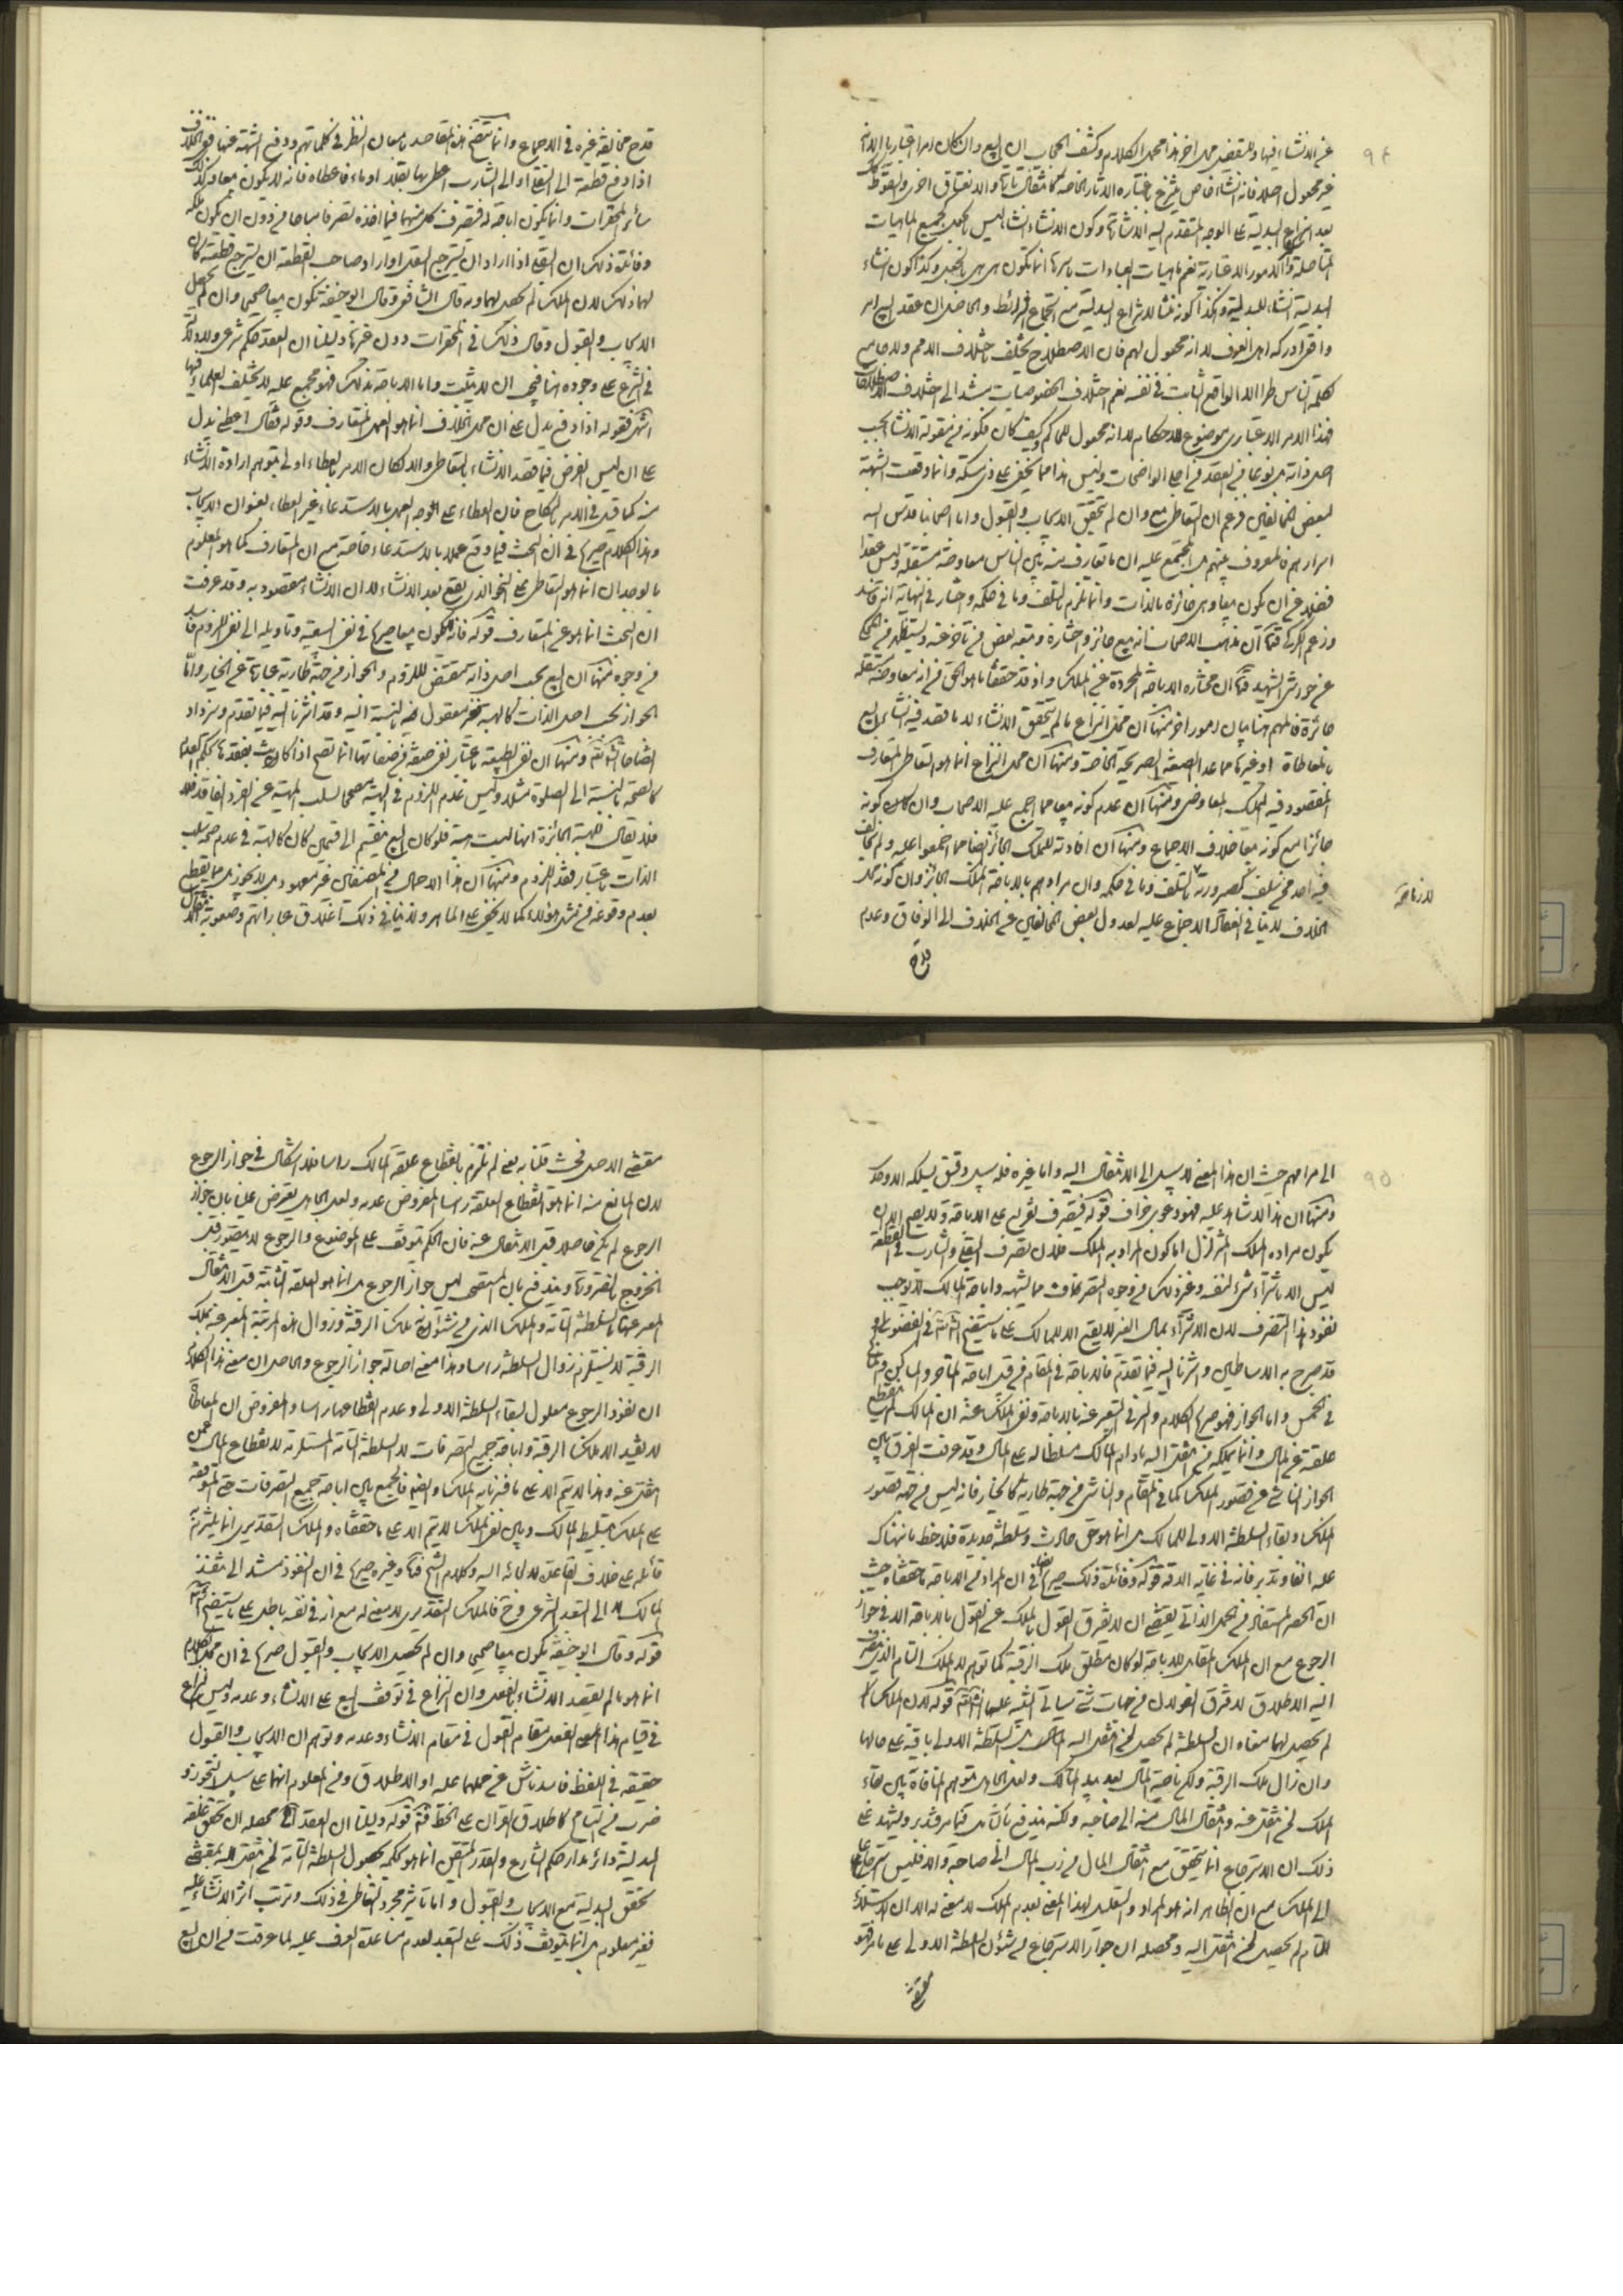 ٩٤
غير الانشاء فيها وللتفصيل محل اخر هذا محمل الكلام وكشف الحجاب ان البيع وان كان امرا اعتباريا الا انه
غير مجعول اصلا فانه انشاء خاص ينتزع باعتباره الاثار الخاصة
بعد انتزاع البدلية على الوجه المتقدم اليه الاشارة وكون الانشاء انشاء ليس بجعل كجميع الماهيات
المتاصلة والامور الاعتبارية نعم ماهيات العبادات باسرها انما تكون هي هي بالجعل وكذا كون انشاء
البدلية انشاء للبدلية وهكذا كونه منشا لانتزاع البدلية مع اجتماع الشرائط والحاصل ان عقد البيع امر
واقعي ادركه اهل العرف لا انه مجعول لهم فان الاصطلاح يختلف باختلاف الامم ولا جامع
لكلمة الناس طرا الا الواقع الثابت في نفسه نعم اختلاف الخصوصيات مستند الى اختلاف الاصطلاحات
فهذا الامر الاعتباري موضوع للاحكام لا انه مجعول للحاكم وكيف كان فكونه من مقولة الانشاء بحسب
اصل ذاته بل نوعا من العقد من اجلى الواضحات وليس هذا مما يخفى على ذي مسكة وانما وقعت الشبهة
لبعض المخالفين فزعم ان التعاطي بيع وان لم يتحقق الايجاب والقبول واما اصحابنا قدس الله
اسرارهم فالمعروف بينهم بل المجتمع عليه ان ما تعارف منه بين الناس معاوضة مستقلة وليس عقدا
فضلا عن ان يكون بيعا وهي جائزة بالذات وانما تلزم بالتلف وما في حكمه واختار في النهاية انه بيع فاسد
وزعم الكركي قده ان مذهب الاصحاب انه بيع جائز واختاره وتبعه بعض من تاخر عنه
عن حواشي الشهيد قده ان مختاره الاباحة المجردة عن الملك واذ قد حققنا ما هو الحق من انه معاوضة مستقلة
جائزة فالمهم هنا بيان امور اخر منها ان محل النزاع ما لم يتحقق الانشاء لا ما قصد فيه انشاء البيع
بالمعاطاة او غيرها مما عدا الصيغة الصريحة الخاصة ومنها ان محل النزاع انما هو التعاطي المتعارف
المقصود فيه الملك المعاوضي ومنها ان عدم كونه بيعا مما اجمع عليه الاصحاب وان كان كونه
جائزا مع كونه بيعا خلاف الاجماع ومنها ان افادته للملك الجائز ايضا مما اجمعوا عليه ولم يخالف
فيه احد من سلف كصيرورته لازما بالتلف وما في حكمه وان مرادهم بالاباحة الملك الجائز وان كونه محل
الخلاف لا ينافي انعقاد الاجماع عليه لعدول بعض المخالفين عن الخلاف الى الوفاق وعدم
قدح
قدح مخالفة غيره في الاجماع وانما يتضح هذه المقاصد بامعان النظر في كلماتهم ودفع الشبهة عنها فنقول في الخلاف
اذا دفع قطعة الى البقلي او الى الشارب اعطني بها بقلا او ماء فاعطاه فانه لا يكون بيعا وكذلك
سائر المحقرات وانما يكون اباحة له فيتصرف كل منهما فيما اخذه تصرفا مباحا من دون ان يكون ملكه
وفائدة ذلك ان البقلي اذا اراد ان يسترجع البقل او اراد صاحب القطعة ان يسترجع قطعته كان
لهما ذلك لان الملك لم يحصل لهما وبه قال الشافعي وقال ابو حنيفة يكون بيعا صحيحا وان لم يحصل
الايجاب والقبول وقال ذلك في المحقرات دون غيرها دليلنا ان العقد حكم شرعي ولا دلالة
في الشرع على وجوده هنا فيجب ان لا يثبت واما الاباحة بذلك فهو مجمع عليه لا يختلف العلماء فيها
انتهى فقوله اذا دفع يدل على ان محل الخلاف انما هو الفعل المتعارف وقوله فقال اعطني يدل
على ان ليس الغرض فيما قصد الانشاء بالتعاطي والا لكان الامر بالاعطاء اولى بتوهم ارادة الانشاء
منه كما قيل في الامر بالنكاح فان العطاء على الوجه العمل بالاستدعاء غير العطاء بعنوان الايجاب
وهذا الكلام صريح في ان البحث فيما وقع عملا بالاستدعاء خاصة مع ان المتعارف كما هو المعلوم
بالوجدان انما هو التعاطي على النحو الذي يقع بعد الانشاء لا ان الانشاء مقصود به وقد عرفت
ان البحث انما هو عن المتعارف قوله فانه لا يكون بيعا صريح في نفي البيعية وتاويله الى نفي اللزوم فاسد
من وجوه منها ان البيع بحسب اصل ذاته مقتض للزوم والجواز من جهة طارية عبارة عن الخيار واما
الجواز بحسب اصل الذات كالهبة فغير معقول فيه بالنسبة اليه وقد اشرنا اليه فيما تقدم وسنزداد
ايضاحا انشاء الله ومنها ان نفي الطبيعة باعتبار نفي صفة من صفاتها انما تصح اذا كان الشيء بفقدها كحكم العدم
كالصحة بالنسبة الى الصلوة مثلا وليس عدم اللزوم في الهبة مصححا لسلب الهبة عن الفرد الفاقد له
فلا يقال للهبة الجائزة انها ليست هبة فلو كان البيع ينقسم الى قسمين كان كالهبة في عدم صحة سلب
الذات باعتبار فقد اللزوم ومنها ان هذا الاحتمال في المصنفين غير معهود بل لا يجوز بل مما يقطع
بعدم وقوعه من مثل هؤلاء كما لا يخفى على الماهر ولا ينافي ذلك اغلاق عباراتهم وصعوبة الانتقال
لا زيادة
٩٥
الى مرامهم حيث ان هذا المعنى لا سبيل الى الانتقال اليه واما غيره فله سبيل دقيق يسلكه الاوحد
ومنها ان هذا لا شاهد عليه فهو دعوى جزاف قوله فيتصرف تفريع على الاباحة ولا يصح الا ان
يكون مراده الملك المتزلزل اما كون المراد به الملك فلان تصرف البقلي والشارب في القطعة
ليس الا بشراء شيء لنفسه وغير ذلك من وجوه التصرفات مما يشبهه واباحة المالك لا توجب
نفوذ هذا التصرف لان الاشتراء بمال الغير لا يقع الا للمالك على ما سيتضح انشاء الله في الفضولي و
قد صرح به الاساطين واشرنا اليه فيما تقدم فالاباحة في المقام من قبيل اباحة المتاجر والمساكن والمناكح
في الخمس واما الجواز فهو صريح الكلام والسر في التعبير عنه بالاباحة ونفي الملك عنه ان المالك لم ينقطع
علقته عن المال وانما يملكه من انتقل اليه ما دام المالك مسلطا له على المال وقد عرفت الفرق بين
الجواز الناشي عن قصور الملك كما في المقام والناشي من جهة طارية كالخيار فانه ليس من جهة قصور
الملك وبقاء السلطنة الاولى للمالك بل انما هو حق حادث وسلطنة جديدة فلاحظ ما نبهناك
عليه انفا وتدبر فانه في غاية الدقة قوله وفائدة ذلك صريح ايضا في ان المراد من الاباحة ما حققناه حيث
ان الحصر المستفاد من الحمل الذاتي يقتضي ان لا يفترق القول بالملك عن القول بالاباحة الا في جواز
الرجوع مع ان الملك المقابل للاباحة لو كان مطلق ملك الرقبة كما توهم لا الملك التام الذي ينصرف
اليه الاطلاق لافترق القولان من جهات شتى سياتي التنبيه عليها انشاء الله قوله لان الملك
لم يحصل لهما معناه ان السلطنة لم يحصل لمن انتقل اليه المال بل السلطنة الاولى باقية على حالها
وان زال ملك الرقبة ولكن ناصية المال بعد بيد المالك ولعل الجاهل يتوهم المنافاة بين بقاء
الملك لمن انتقل عنه وانتقال المال منه الى صاحبه ولكنه يندفع بالتامل فيما مر فتدبر ويشهد على
ذلك ان الاسترجاع انما يتحقق مع انتقال المال من رب المال الى صاحبه والا فليس استرجاعا
الى الملك مع ان الظاهر انه هو المراد والتعليل لهذا المعنى بعدم الملك لا معنى له الا ان الاستيلاء
التام لم يحصل لمن انتقل اليه ومحصله ان جواز الاسترجاع من شئون السلطنة الاولى على ما هو
مقتضى
مقتضى الاصل فحيث قلنا به بمعنى لم نلتزم بانقطاع علقة المالك راسا فلا اشكال في جواز الرجوع
لان المانع منه انما هو انقطاع العلقة راسا والمفروض عدمه ولعل الجاهل يعترض علينا بان جواز
الرجوع لم يكن حاصلا قبل الانتقال عنه فان الحكم يتوقف على الموضوع والرجوع لا يتصور قبل
الخروج بالضرورة ويندفع بان المستصحب ليس جواز الرجوع بل انما هو العلقة الثابتة قبل الانتقال
المعبر عنها بالسلطنة التامة والملك الذي من شئونه ملك الرقبة وزوال هذه المرتبة المعبر عنه بملك
الرقبة لا يستلزم زوال السلطنة راسا وهذا معنى اصالة جواز الرجوع والحاصل ان معنى هذا الكلام
ان نفوذ الرجوع معلول لبقاء السلطنة الاولى وعدم انقطاعها راسا والمفروض ان المعاطاة
لا يفيد الا ملك الرقبة واباحة جميع التصرفات لا السلطنة التامة المستلزمة لانقطاع المال عمن
انتقل عنه وهذا لا يتم الا على ما فسرنا به الملك وايضا فالجمع بين اباحة جميع التصرفات حتى المتوقفة
على الملك بتسليط المالك وبين نفي الملك لا يتم الا على ما حققناه والملك التقديري انما يلتزم به
قائله على خلاف القاعدة لالجائه اليه وكلام الشيخ قده وغيره صريح في ان النفوذ مستند الى تنفيذ
المالك لا الى التعبد الشرعي وح فالملك التقديري لا معنى له مع انه في نفسه باطل على ما سيتضح انشاء الله
قوله وقال ابو حنيفة يكون بيعا صحيحا وان لم يحصل الايجاب والقبول صريح في ان محل الكلام
انما هو ما لم يقصد الانشاء بالفعل وان النزاع في توقف البيع على الانشاء وعدمه وليس النزاع
في قيام هذا الفعل مقام القول في مقام الانشاء وعدمه وتوهم ان الايجاب والقبول
حقيقة في اللفظ فاسد ناش عن حملهما عليه او الاطلاق ومن المعلوم انهما على سبيل التجوز و
ضرب من التسامح كاطلاق القران على الخط قوله دليلنا ان العقد الخ محصله ان تحقق علقة
البدلية دائر مدار حكم الشارع والقدر المتيقن انما هو حكمه بحصول السلطنة التامة لمن انتقل اليه بمقتضى
تحقق البدلية مع الايجاب والقبول واما تاثير مجرد التعاطي في ذلك وترتب اثر الانشاء عليه
فغير معلوم بل انما يتوقف ذلك على التعبد لعدم مساعدة العرف عليه لما عرفت من ان البيع